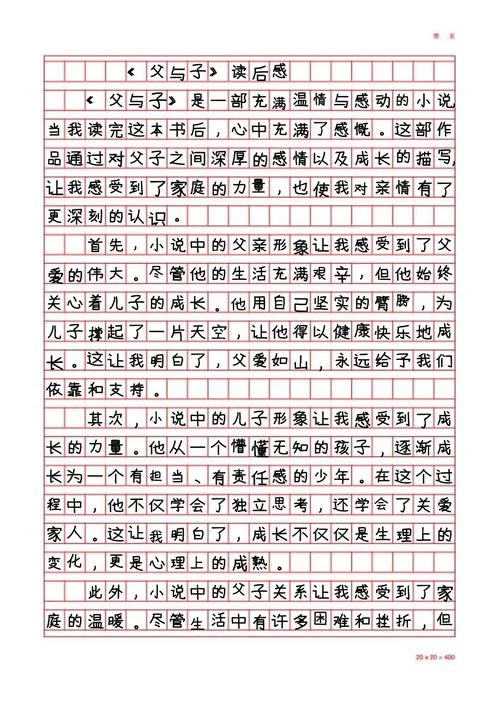 第 页
《父与子》读后感
《父与子》是一部充满温情与感动的小说,
当我读完这本书后,心中充满了感慨。这部作
品通过对父子之间深厚的感情以及成长的描写,
让我感受到了家庭的力量,也使我对亲情有了
更深刻的认识。
首先,小说中的父亲形象让我感受到了父
爱的伟大。尽管他的生活充满艰辛,但他始终
关心着儿子的成长。他用自己坚实的臂膀,为
儿子撑起了一片天空,让他得以健康快乐地成
长。这让我明白了,父爱如山,永远给予我们
依靠和支持。
其次,小说中的儿子形象让我感受到了成
长的力量。他从一个懵懂无知的孩子,逐渐成
长为一个有担当、有责任感的少年。在这个过
程中,他不仅学会了独立思考,还学会了关爱
家人。这让我明白了,成长不仅仅是生理上的
变化,更是心理上的成熟。
此外,小说中的父子关系让我感受到了家
庭的温暖。尽管生活中有许多困难和挫折,但
20 x 20 = 400